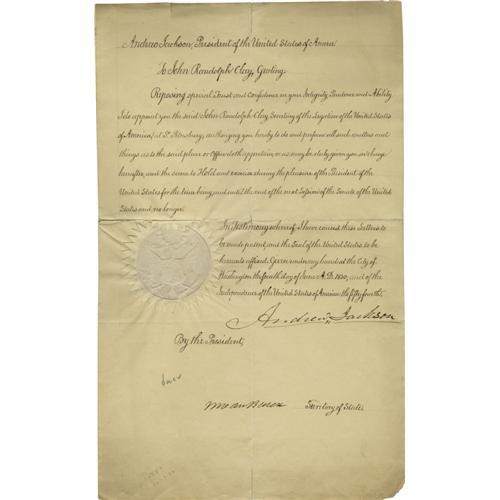 Andrew Jackson, President of the United States of America
To John Randolph Clay, Greeting:
Reposing special Trust and Confidence in your Integrity Prudence and Ability
I do appoint you the said John Randolph Clay, Secretary of the Legation of the United States
of America, at St. Petersburg, authorizing you hereby to do and perform all such matters and
things as to the said place or Office doth appertain, or as may be duly given you in charge
hereafter, and the same to Hold and exercise during the pleasure of the President of the United
States for the time being, and until the end of the next Session of the Senate of the United
States and no longer.
In Testimony whereof, I have caused these Letters to
be made patent, and the Seal of the United States to be
hereunto affixed. Given under my hand at the City of
Washington the fourth day of June A.D. 1830, and of the
Independence of the United States of America the fifty fourth.
Andrew Jackson
By the President,
M Van Buren Secretary of State